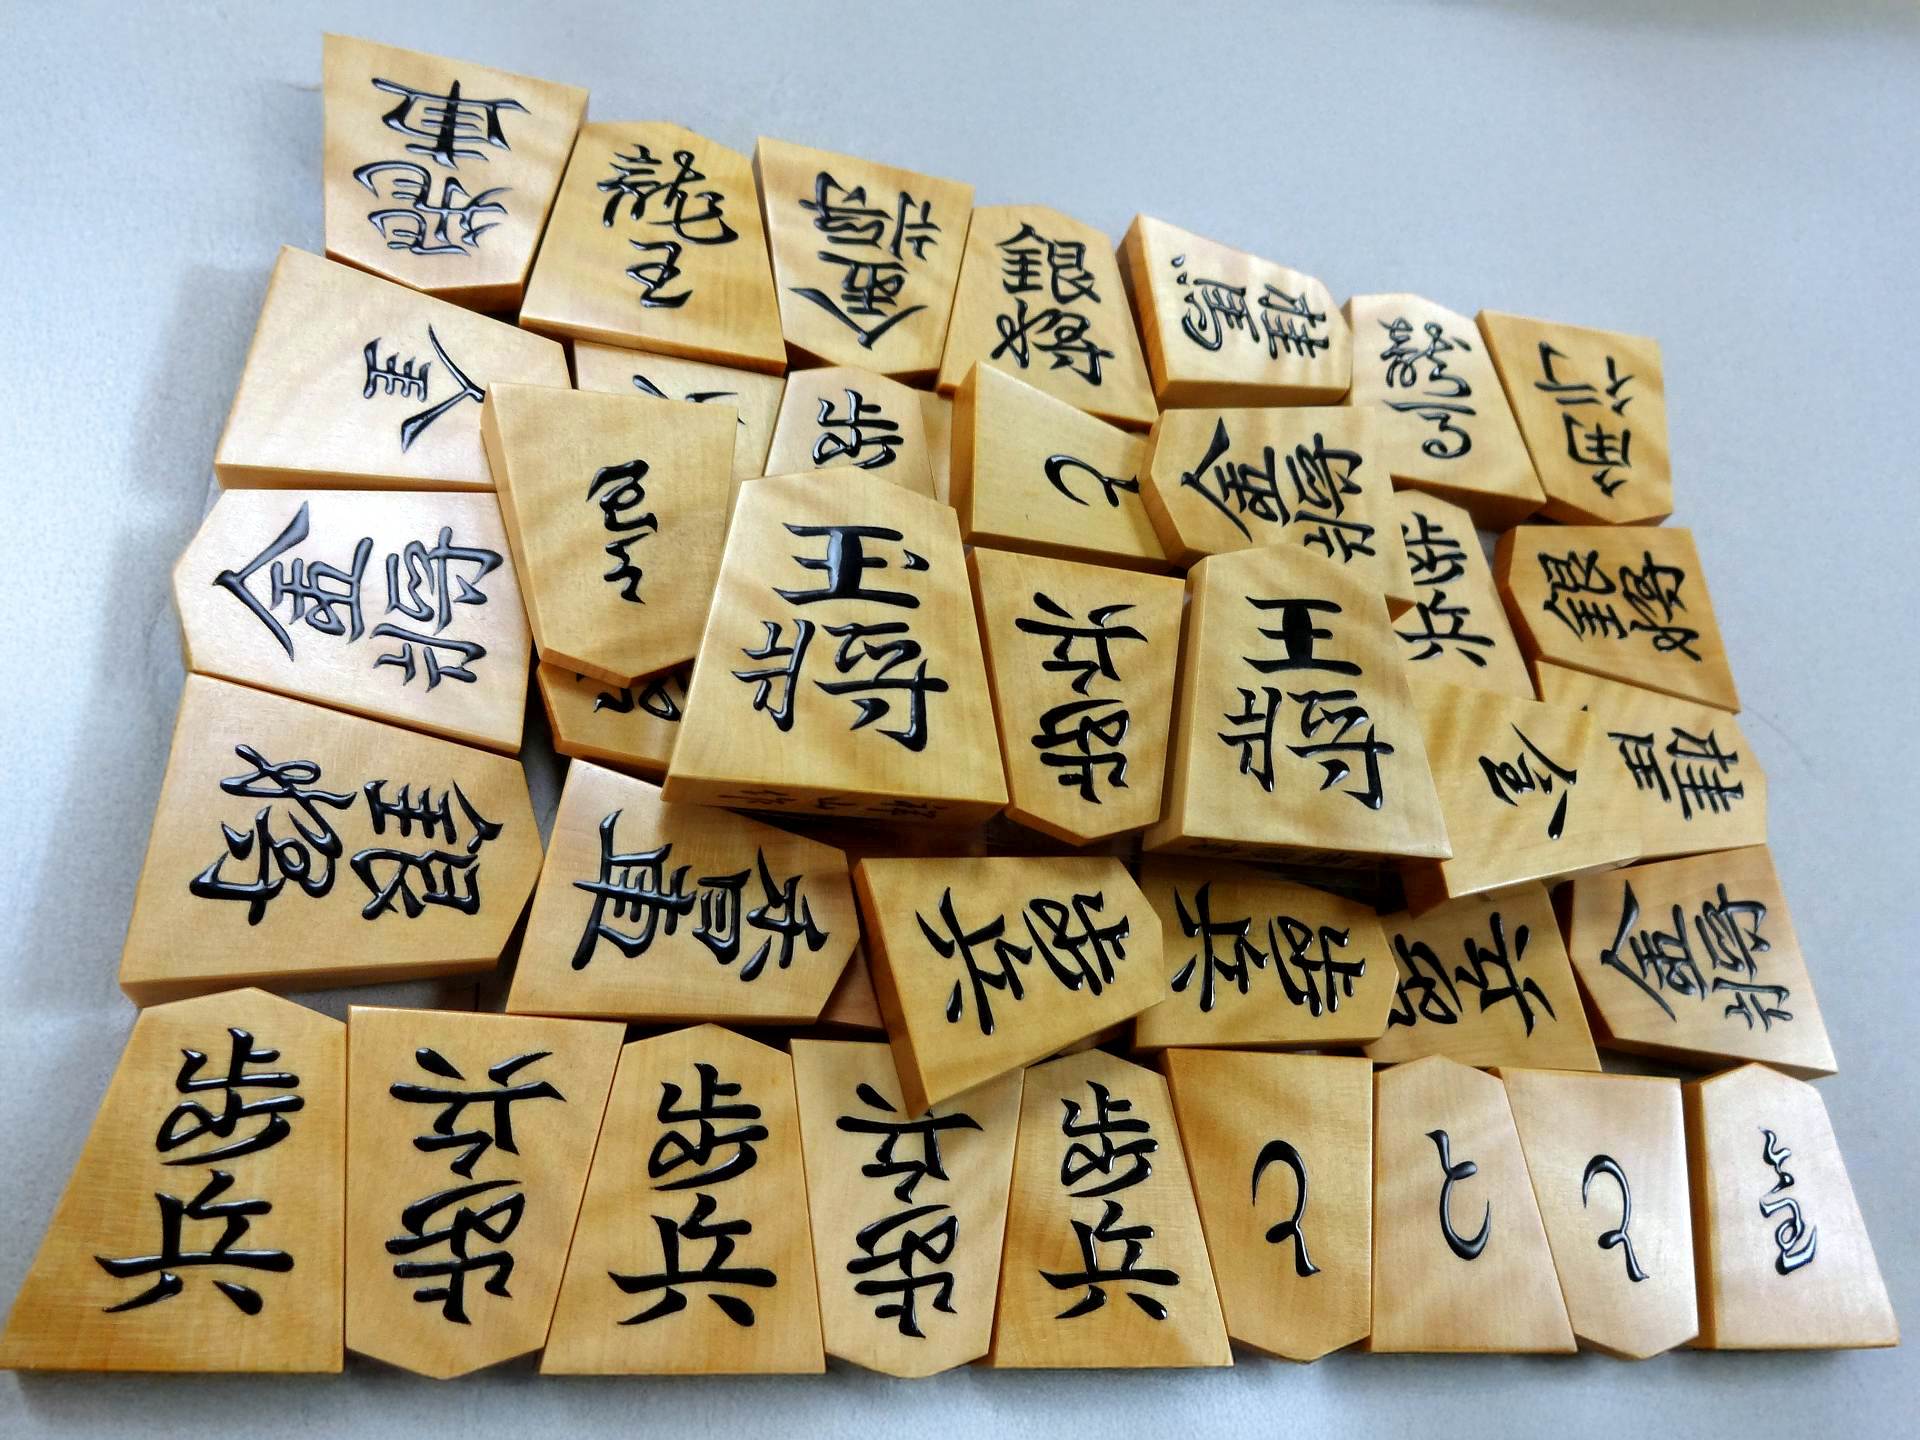 飛車
龍王
金将
銀将
桂馬
龍馬
角行
全
歩
と
金将
金将
歩兵
銀将
玉将
歩兵
王将
金
桂
銀将
香車
歩兵
歩兵
歩兵
金将
歩兵
歩兵
歩兵
歩兵
歩兵
と
と
と